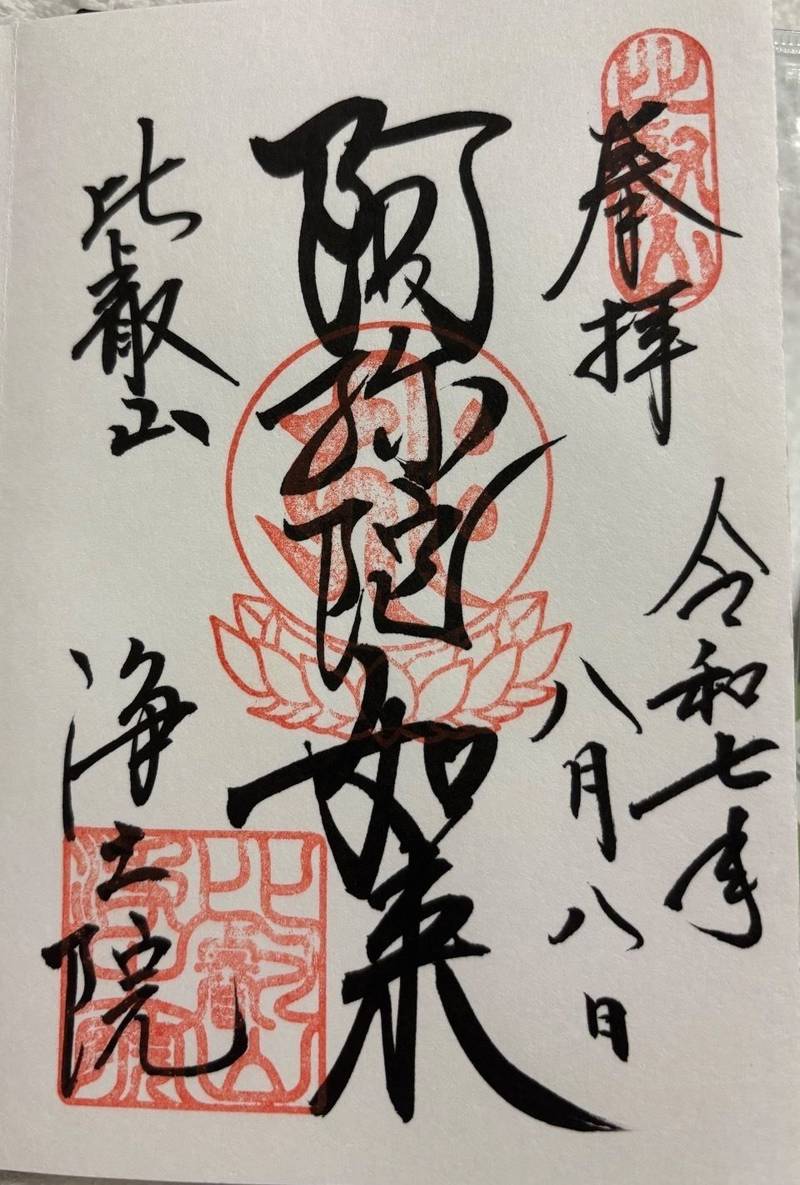 奉拝
令和七年
八月八日
阿弥陀如来
比叡山
浄土院
比叡山